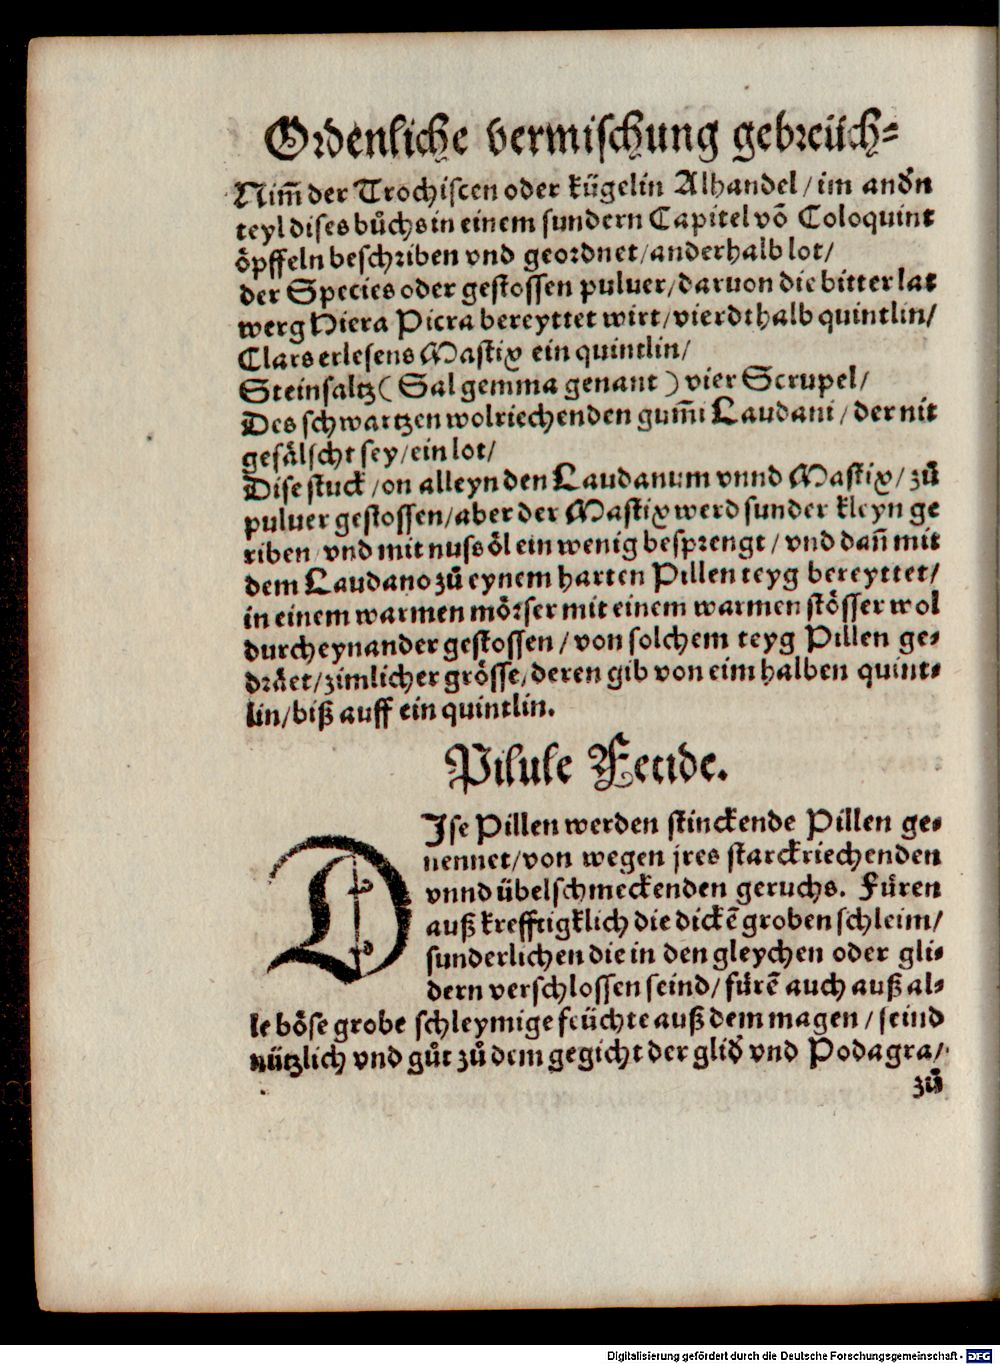 Ordenliche vermischung gebreüch-
Nim̃ der Trochiscen oder kügelin Alhandel/im andn̄
teyl dises bůchs in einem sundern Capitel võ Coloquint
öpffeln beschriben vnd geordnet/anderhalb lot/
der Species oder gestossen puluer/daruon die bitter lat
werg Hiera Picra bereyttet wirt/vierdthalb quintlin/
Clars erlesens Mastix ein quintlin/
Steinsaltz (Sal gemma genant) vier Scrupel/
Des schwartzen wolriechenden gum̃i Laudani/der nit
gefälscht sey/ein lot/
Dise stuck/on alleyn den Laudanum vnnd Mastix/zů
puluer gestossen/aber der Mastix werd sunder kleyn ge
riben/vnd mit nussöl ein wenig besprengt/vnd dañ mit
dem Laudano zů eynem harten Pillen teyg bereyttet/
in einem warmen mörser mit einem warmen stösser wol
durcheynander gestossen/von solchem teyg Pillen ge-
dräet/zimlicher grösse/deren gib von eim halben quint-
lin/biß auff ein quintlin.
Pilule Fetide.
DIse Pillen werden stinckende Pillen ge-
nennet/von wegen jres starckriechenden
vnnd übelschmeckenden geruchs. Füren
auß krefftigklich die dickẽ groben schleim/
sunderlichen die in den gleychen oder gli-
dern verschlossen seind/fürẽ auch auß al-
le böse grobe schleymige feüchte auß dem magen/seind
nützlich vnd gůt zů dem gegicht der glid̃ vnd Podagra/
zů
Digitalisierung gefördert durch die Deutsche Forschungsgemeinschaft - DFG